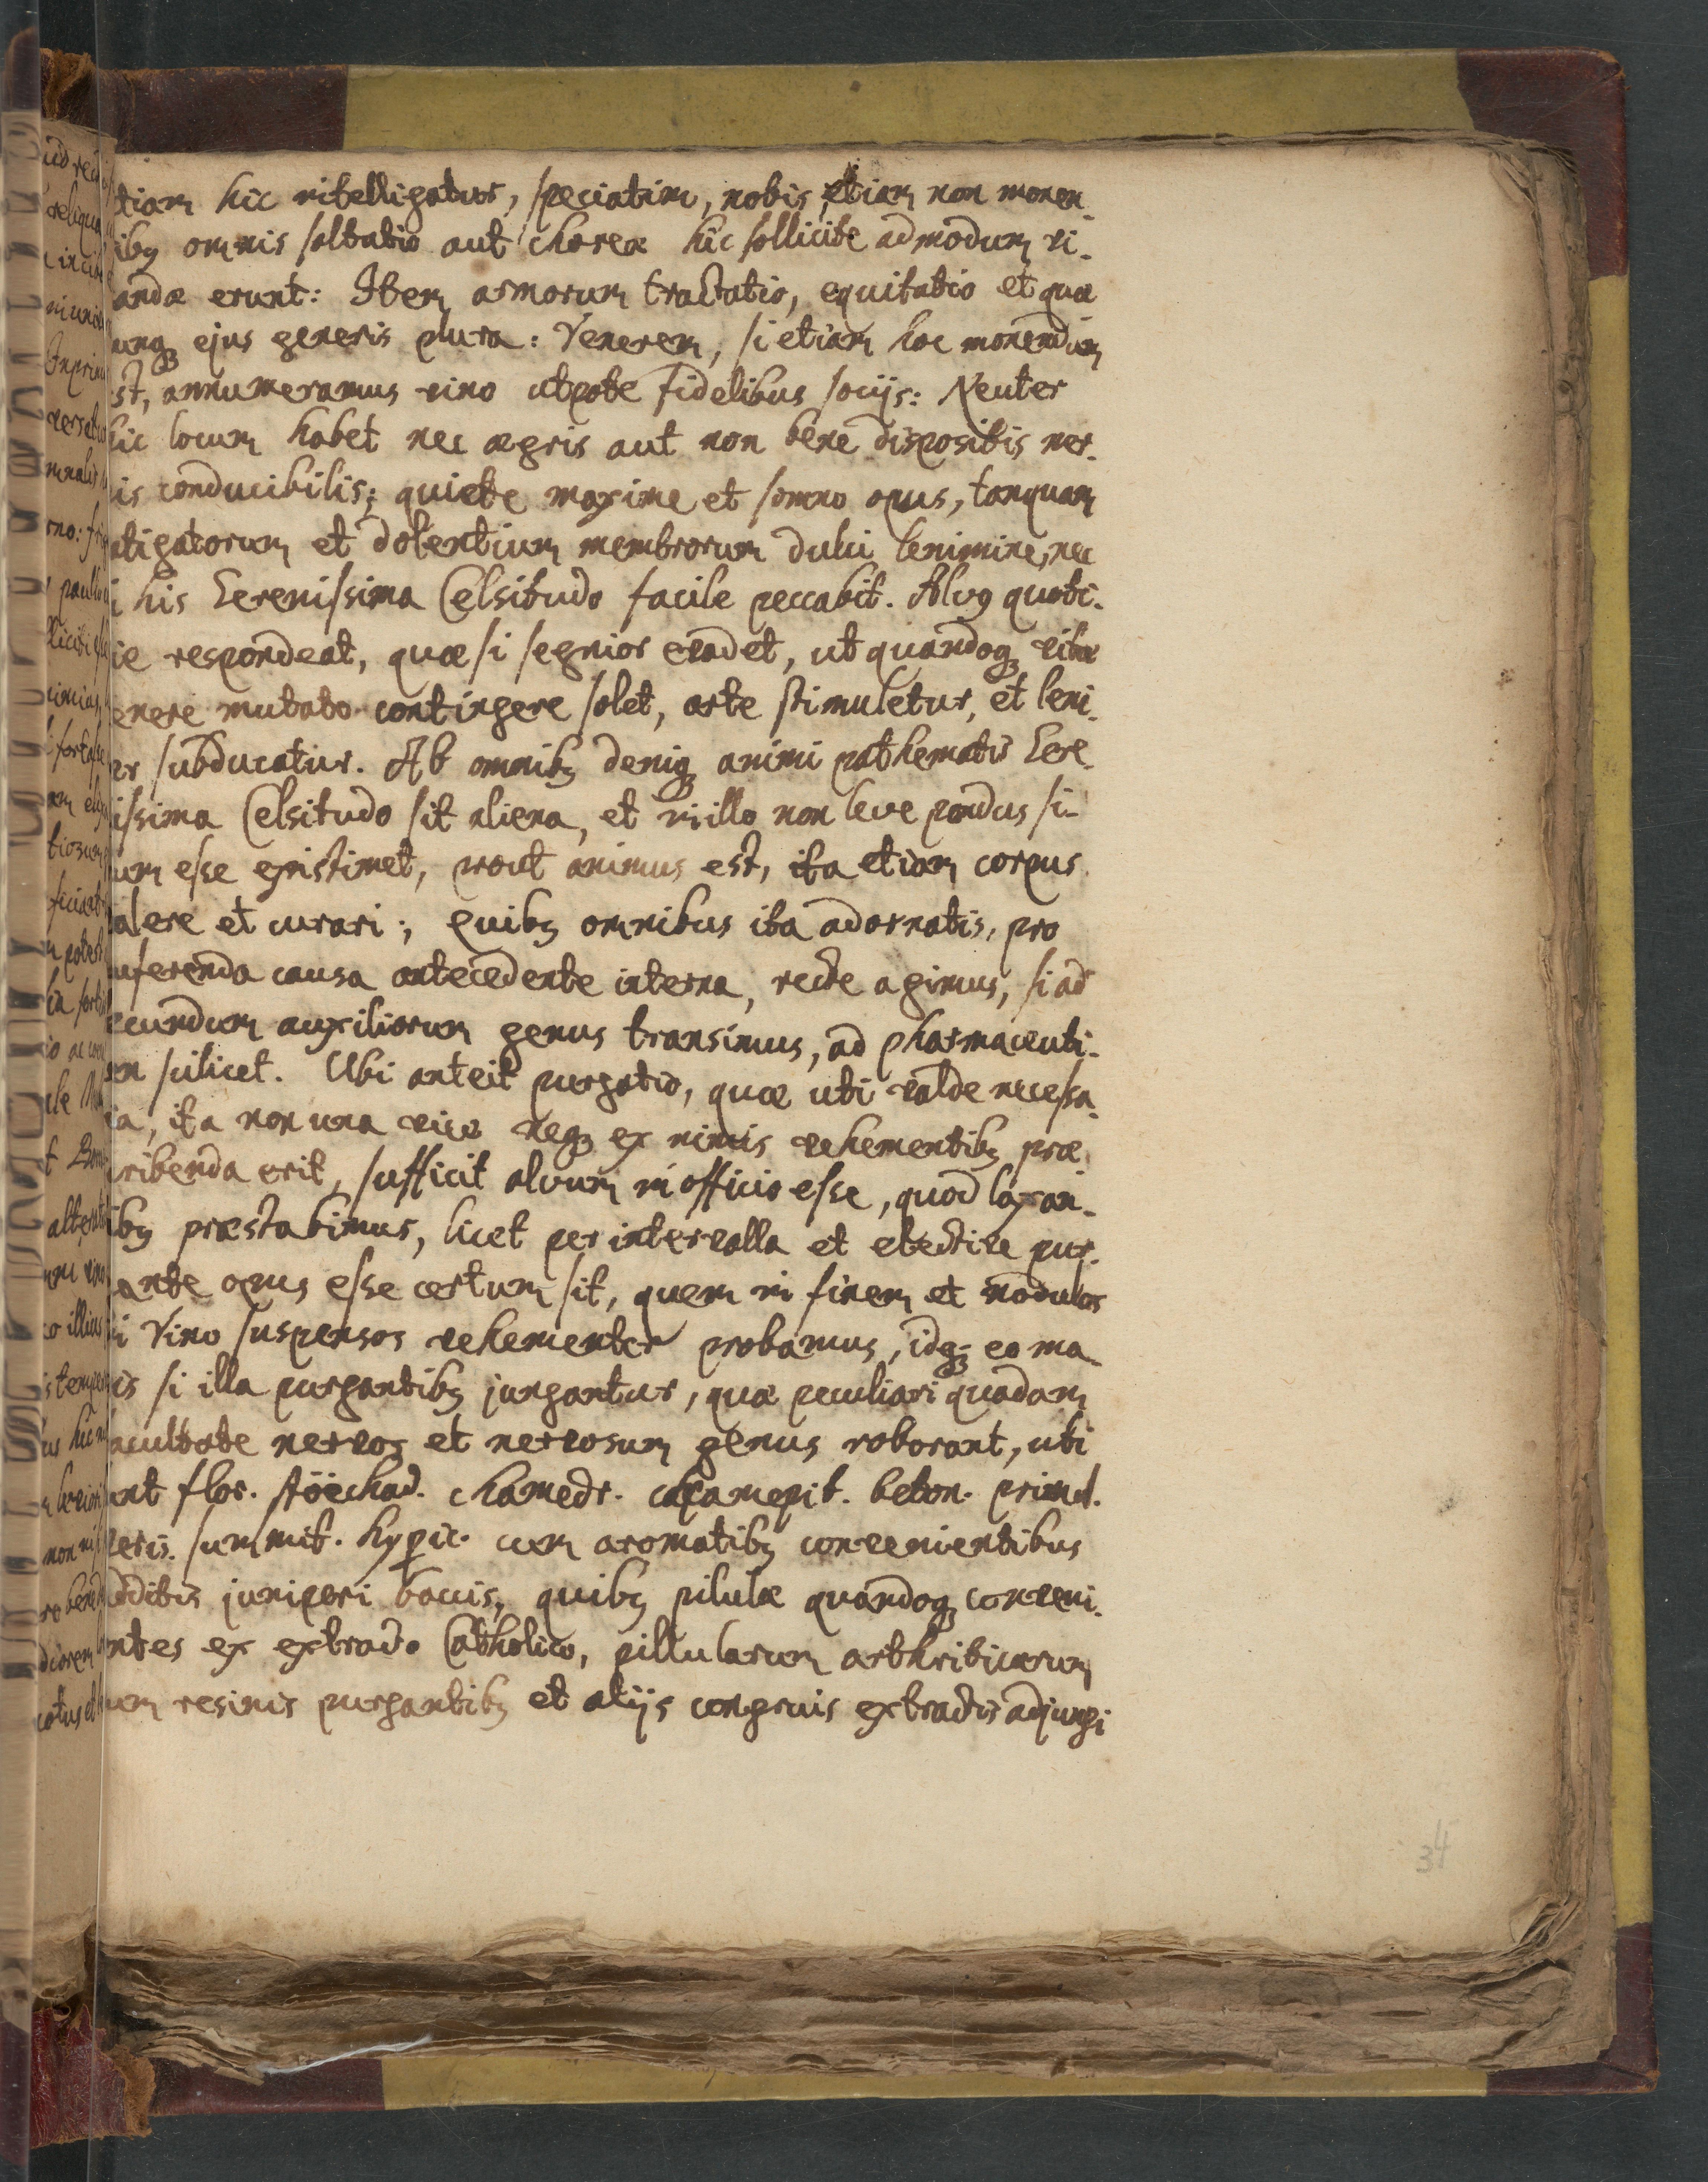 tiam hic intelligatur, speciatim, nobis etiam non monen-
ibꝫ omnis saltatio aut choreæ hic sollicite admodum vi-
andæ erunt: Item armorum tractatio, equitatio et quæ
unqꝫ ejus generis plura: Venerem, si etiam hoc monendum
st, annumeramus vino utpote fidelibus socijs: Neuter
hic locum habet nec ægris aut non bene dispositis ner-
is conducibilis; quiete maxime et somno opus, tanquam
atigatorum et dolentium membrorum dulci lenimine, nec
i his Serenissima Celsitudo facile peccabit. Alvꝰ quoti-
ie respondeat, quæ si segnior evadet, ut quandoqꝫ vitæ
enere mutato contingere solet, arte stimuletur, et leni-
er subducatur. Ab omnibꝫ deniqꝫ animi pathematis Sere-
issima Celsitudo sit aliena, et in illo non leve pondus si-
um esse existimet, prout animus est, ita etiam corpus
alere et curari; Quibꝫ omnibus ita adornatis, pro
auferenda causa antecedente interna, recte agimus, si ad
ecundum auxiliorum genus transimus, ad pharmaceuti-
m scilicet. Ubi anteit purgatio, quæ uti valde necessa-
ia, ita non una vice neqꝫ ex nimis vehementibꝫ præ-
cribenda erit, sufficit alvum in officio esse, quod laxan-
ibꝫ præstabimus, licet per intervalla et elective pur-
ante opus esse certum sit, quem in finem et nodulos
i Vino suspensos vehementer probamus, idqꝫ eo ma-
is si illa purgantibꝫ jungantur, quæ peculiari quadam
acultate nervos et nervosum genus roborant, uti
unt flor. stöechad. chamedr. chamepit. beton. primul.
veris. summit. hyperic. cum aromatibꝫ convenientibus
dditis juniperi baccis, quibꝫ pilulæ quandoqꝫ conveni-
ntes ex extracto Catholico, pillularum arthriticarum
um resinis purgantibꝫ et alijs congruis extractis adjungi
34